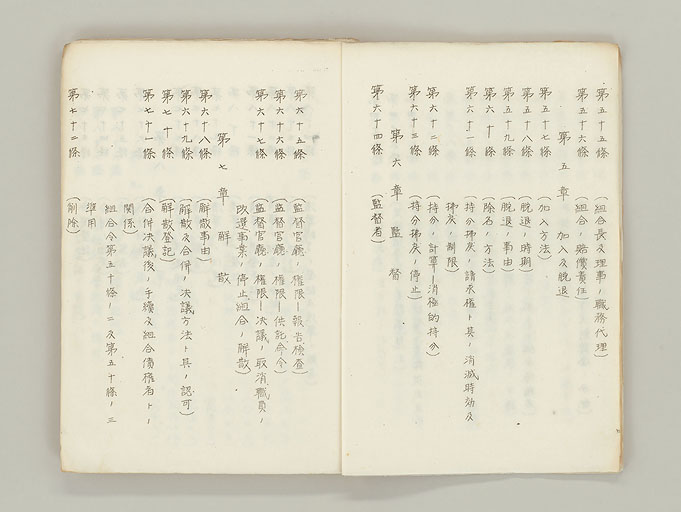 第五十五條(組合長及理事ノ職務代理)
第五十六條(組合ノ賠償責任)
第五章 加入及脱退
第五十七條(加入ノ方法)
第五十八條(脱退ノ時期)
第五十九條(脱退ノ事由)
第六十條(除名ノ方法)
第六十一條(持分拂戻ノ請求權ト其ノ消滅時効及
拂戻ノ制限)
第六十二條(持分ノ計算―消極的持分)
第六十三條(持分拂戻ノ停止)
第六章 監督
第六十四條(監督者)
第六十五條(監督官廳ノ權限―報告檢査)
第六十六條(監督官廳ノ權限―供託命令)
第六十七條(監督官廳ノ權限―決議ノ取消職員ノ
改選事業ノ停止組合ノ解散)
第七章 解散
第六十八條(解散事由)
第六十九條(解散及合併ノ決議方法ト其ノ認可)
第七十條(解散登記)
第七十一條(合併決議後ノ手續及組合債權者トノ
關係)
組合令第五十條ノ二及第五十條ノ三
準用
第七十二條(削除)